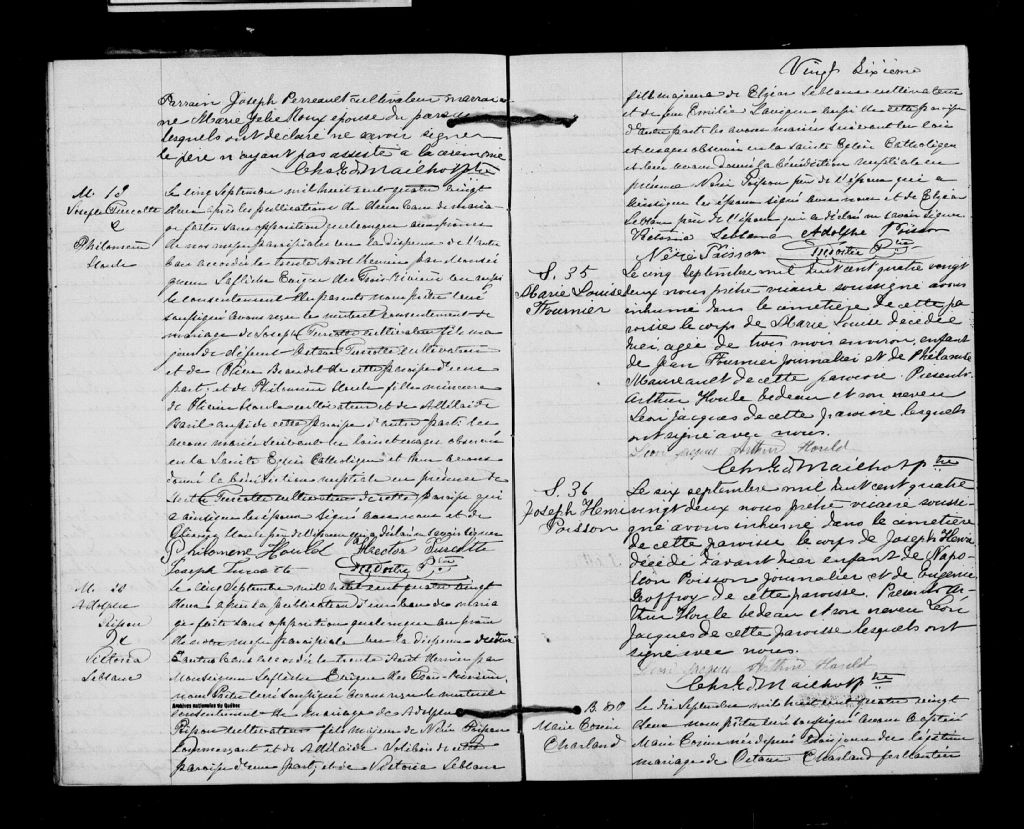 Parrain Joseph Perreault cultivateur marrai
ne Marie Zélie Roux epouse du parain
lesquels ont declaré ne savoir signer
le père n'ayant pas assisté a la ceremonie
Chs Ed Mailhot Ptre
M. 19
Joseph Turcotte
&
Philomène
Houle
Le cinq Septembre mil huit cent quatre vingt
deux après les publications de deux bans de maria
ge faites sans opposition quelconque aux prônes
de nos messes paroissiales vu la dispense de l'autre
ban accordée le trente Août dernier par Monsei
gneur Laflèche Evêque des Trois Rivières vu aussi
le consentement des parents nous prêtre curé
soussigné avons reçu le mutuel consentement de
mariage de Joseph Turcotte cultivateur fils ma
jeur de défunt Turcotte cultivateur
et de Olive Beaudet de cette paroisse d'une
part; et de Philomène Houle fille mineure
de Houle cultivateur et de Adélaïde
Baril aussi de cette paroisse d'autre part; les
avons mariés suivant les lois et usages observés
en la Sainte Eglise Catholique et leur avons
donné la bénédiction nuptiale en présence de
Turcotte cultivateur de cette paroisse qui
a ainsi que les époux signé avec nous et de
Houle père de l'épouse qui a déclaré ne savoir signer
Philomène Hould Hector Turcotte
Joseph Turcotte Ptre
M. 20
Adolphe
Poisson
&
Victoria
Leblanc
Le cinq Septembre mil huit cent quatre vingt
deux après la publication d'un ban de maria
ge faite sans opposition quelconque au prône
de notre messe paroissiale vu la dispense des deux
autres bans accordée le trente Août dernier par
Monseigneur Laflèche Evêque des Trois-Rivières,
nous Prêtre curé soussigné avons reçu le mutuel
Archives nationales du Québec
consentement de mariage de Adolphe
Poisson cultivateur fils majeur de Néré Poisson
commerçant et de Adélaïde de cette
paroisse d'une part; et de Victoria Leblanc
Vingt Sixième
fille majeure de Elzéar Leblanc cultivateur
et de feu Emilie Lavigne aussi de cette paroisse
d'autre part: les avons mariés suivant les lois
et usages observés en la Sainte Eglise Catholique
et leur avons donné la bénédiction nuptiale en
présence Néré Poisson père de l'époux qui a
ainsi que les époux signé avec nous et de Elzéar
Leblanc père de l'épouse qui a déclaré ne savoir signer.
Victoria Leblanc Adolphe Poisson
Néré Poisson Ptre
S. 35
Marie Louise
Fournier
Le cinq septembre mil huit cent quatre vingt
deux nous prêtre vicaire soussigné avons
inhumé dans le cimetière de cette pa
roisse le corps de Marie Louise décédée
hier, agée de trois mois environ, enfant
de Jean Fournier journalier et de Philomène
Manseault de cette paroisse. Présents
Arthur Houle bedeau et son neveu
Léon Jacques de cette paroisse lesquels
ont signé avec nous.
Léon Jacques Arthur Hould
Chs Ed Mailhot ptre
S. 36
Joseph Henri
Poisson
Le six septembre mil huit cent quatre
vingt deux nous prêtre vicaire soussi
gné avons inhumé dans le cimetière
de cette paroisse le corps de Joseph Henri
décédé d'avant hier enfant de Napo
léon Poisson journalier et de Eugenie
Geoffroy de cette paroisse. Présents Ar-
thur Houle bedeau et son neveu Léon
Jacques de cette paroisse lesquels ont
signé avec nous.
Léon Jacques Arthur Hould
Chs Ed Mailhot ptre
B. 80
Marie Corine
Charland
Le dix Septembre mil huit cent quatre vingt
deux nous prêtre curé soussigné avons baptisé
Marie Corine née depuis trois jours du légitime
mariage de Octave Charland ferblantier